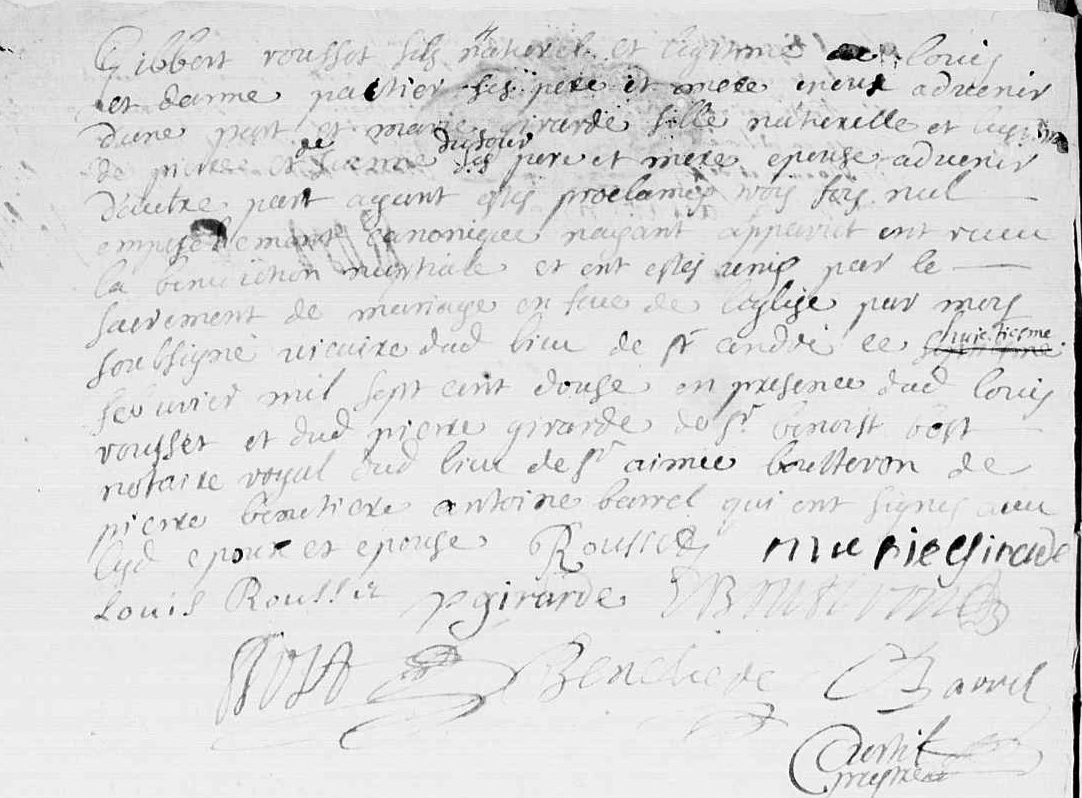 Gilbert rousset fils naturel et legitime de louis
et danne patier ses pere et mere epoux advenir
dune part et marie girarde fille naturelle et legitime
de pierre et de jeanne dufour ses pere et mere epouse advenir
dautre part ayant estes proclames trois fois nul
empeschement canonique nayant apparut ont receu
la benediction nuptiale et ont estes unis par le
sacrement de mariage en face de leglise par moy
soubsigné vicaire dud lieu de st andré ce huictiesme
feuvrier mil sept cent douse en presence dud louis
rousset et dud pierre girarde de sr benoist bost
notaire royal dud lieu de sr aimée de
pierre benetiere antoine barrel qui ont signes avec
lesd epoux et epouse Rousset marie Girarde
Louis Rousset p girarde
Benetiere Barrel
prestre